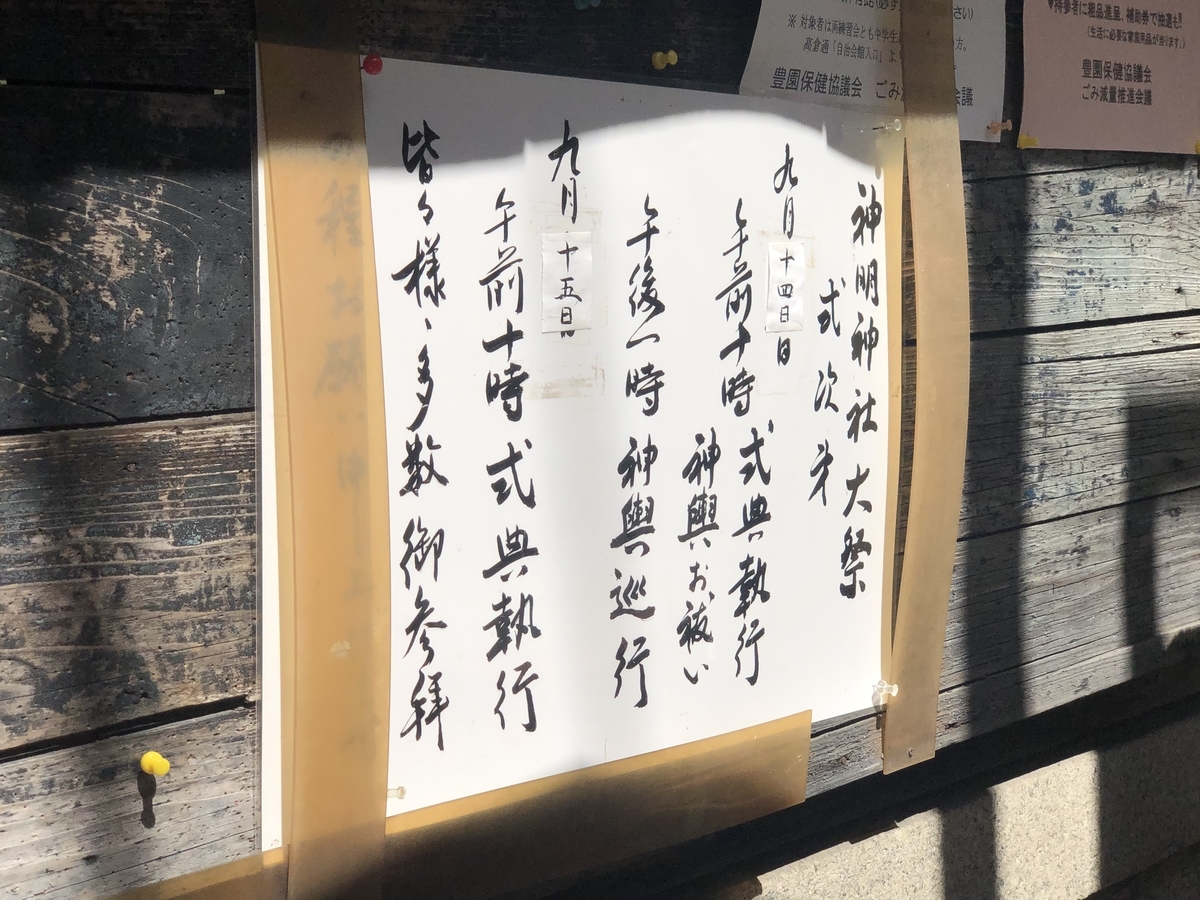 神明神社大祭
式次第
九月十四日日
午前十時 式典執行
神輿お祓い
午後一時 神輿巡行
九月十五日
午前十時式典執行
皆々様、多数御参拝
程お願い申上
※ 対象者は両練習会とも中学生
高倉通「自治会館入口」よ
豊園保健協議会 ごみ
会議
♥待参者に粗品進呈、補助券で抽選も!!
(生活に必要な家庭用品が当ります。)
豊園保健協議会
ごみ減量推進会議